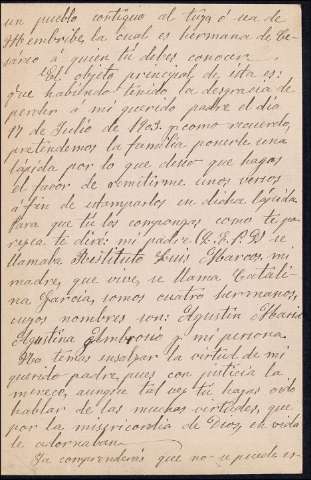 un pueblo contiguo al tuyo ó sea de
Membribe, la cual es hermana de Ce-
sáreo á quien tú debes conocer.
El objeto principal de esta es:
que habiendo tenido, la desgracia de
perder a mi querido padre el dia
17 de Julio de 1903. y como recuerdo,
pretendemos la familia ponerle una
lápida por lo que deseo que hagas
el favor de remitirme unos versos
á fin de estamparlos en dicha lápida.
Para que tú los compongas como te pa-
rezca te diré: mi padre (Q. E. P. D) se
llamaba Restituto Luis Marcos, mi
madre, que vive, se llama Catali-
na Garcia, somos cuatro hermanos,
cuyos nombres son: Agustin Maria
Agustina Ambrosio y mi persona.
No temas ensalzar la virtud de mi
querido padre pues con justicia la
merece, aunque tal vez tú hayas oido
hablar de las muchas virtudes, que
por la misericordia de Dios, en vida
le adornaban.
Ya comprenderás que no se puede es-